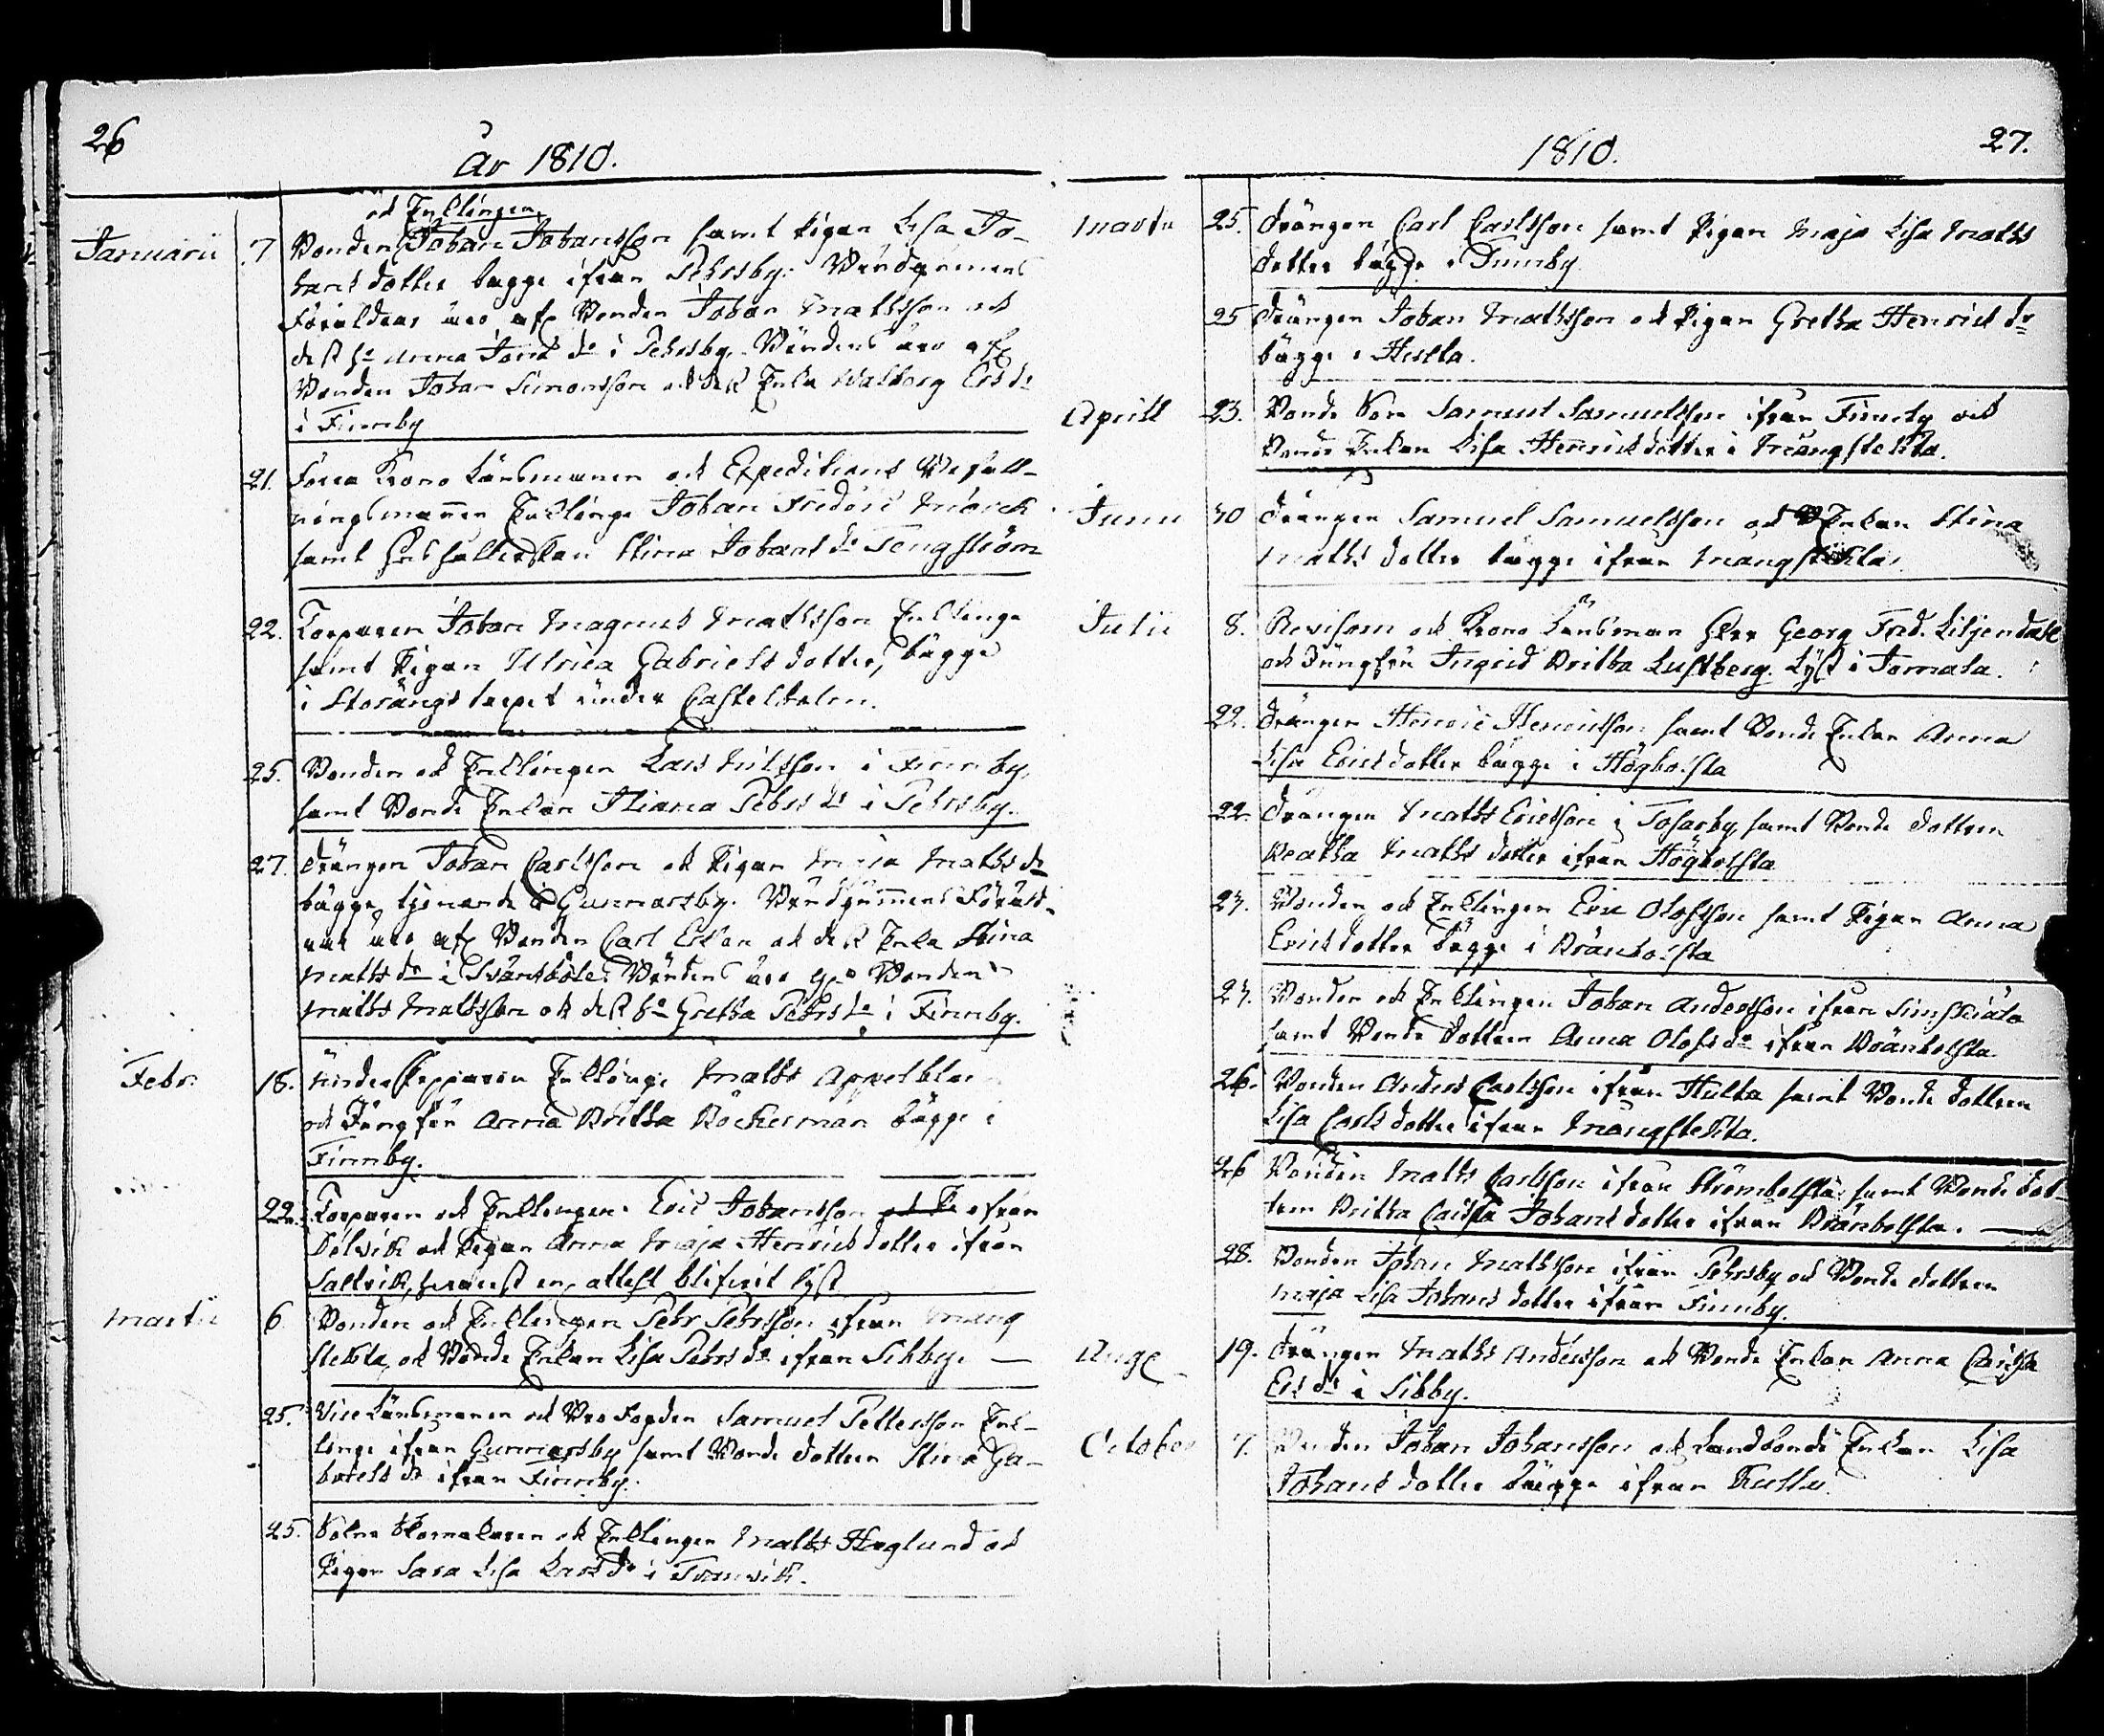 26
År 1810.
och Enklingen
Januarii 7 Bonden Johan Johansson samt Pigan Lisa Jo-
hansdotter bägge ifrån Pehrsby. Brudgumens
Föräldrar äro afl Bonden Johan Mathsson och
dess h: Anna Jans dr i Pehrsby. Brudens äro afl
Bonden Johan Simonsson och dess Enka Walborg Ers dr
i Finnby
21. Förra Krono Länsmannen och Expeditions Befall-
ningsmannen Enklinge Johan Fredric Mörck
samt Hushållerskan Stina Johans dr Tengström
22. Torparen Johan Magnus Mathsson Enklinge
samt Pigan Ulrica Gabrielsdotter, bägge
i Storängstorpet under Castelholm.
25. Bonden och Enklingen Lars Nilsson i Finnby,
samt Bonde Enkan Pehrs dr i Pehrsby.
27. Drängen Johan Carlsson och Pigan Maja Maths dr
bägge tjenande i Gunnarsby. Brudgummens Föräld-
rar äro afl Bonden Carl och dess Enka Stina
Maths dr i Svartsböle. Brudens äro Bonden
Maths Mathsson och dess h: Gretha Pehrs dr i Finnby.
Febr: 18. Underskepparen Enklinge Maths Appelblo
och Jungfru Anna Britha Böckerman bägge i
Finnby.
22. Torparen och Enklingen Eric Johansson ifrån
och Pigan Anna Maja Henricsdotter ifrån
Saltvik, hvarest en attest blifvit lyst
Martii 6 Bonden och Enklingen Pehr Pehrsson ifrån Mång
stekta, och Bonde Enkan Lisa Pehrs dr ifrån Sibby. —
25. Vice Länsmannen och Bro Fogden Samuel Pettersson Enk-
linge ifrån Gunnarsby samt Bonde dottren Stina Ga-
briels dr ifrån Finnby.
25. och Enklingen Maths Haglund och
Pigan Sara Lisa Lars dr i Tranvik.
1810. 27.
Martii 25. Drängen Carl Carlsson samt Pigan Maja Lisa Maths
dotter bägge i Finnby
25 Drängen Johan Mathsson och Pigan Gretha Henrics dr
bägge i Hulta.
Aprill 23. Bonde Son Samuel Samuelsson ifrån Finnby och
Bonde Enkan Lisa Henricsdotter i Mångstekta.
Junii 10 Drängen Samuel Samuelsson och Enkan Stina
Maths dotter bägge ifrån Mangstekta.
Julii 8. Revisorn och Krono Länsman Herr Georg Fred. Liljendahl
och Jungfru Ingrid Britha Lustberg. Lyst i Jomala.
22. Drängen Henric Henricsson samt Bonde Enkan Anna
Lisa Ericsdotter bägge i Högbolsta
22. Drängen Maths Ericsson i Tosarby samt Bonde dottren
Beatha Maths dotter ifrån Högbolsta
23. Bonden och Enklingen Eric Olofsson samt Pigan Anna
Ericsdotter bägge i Bränbolsta
23. Bonden och Enklingen Johan Andersson ifrån Simskiäla
samt Bonde dottren Anna Olofs dr ifrån Bränbolsta.
26. Bonden Anders Carlsson ifrån Hulta samt Bonde dottren
Lisa Carls dotter ifrån Mångstekta.
26 Bonden Maths Carlsson ifrån Strömbolsta samt Bonde dot-
tern Britha Caisa Johans dotter ifrån Bränbolsta. —
28. Bonden Johan Mathsson ifrån Pehrsby och Bonde dottren
Maja Lisa Johans dotter ifrån Finnby.
Aug 19. Drängen Maths Andersson och Bonde Enkan Anna Caisa
Ers dr i Sibby.
October 7. Bonden Johan Johansson och Landbonde Enkan Lisa
Johans dotter bägge ifrån Kulla.